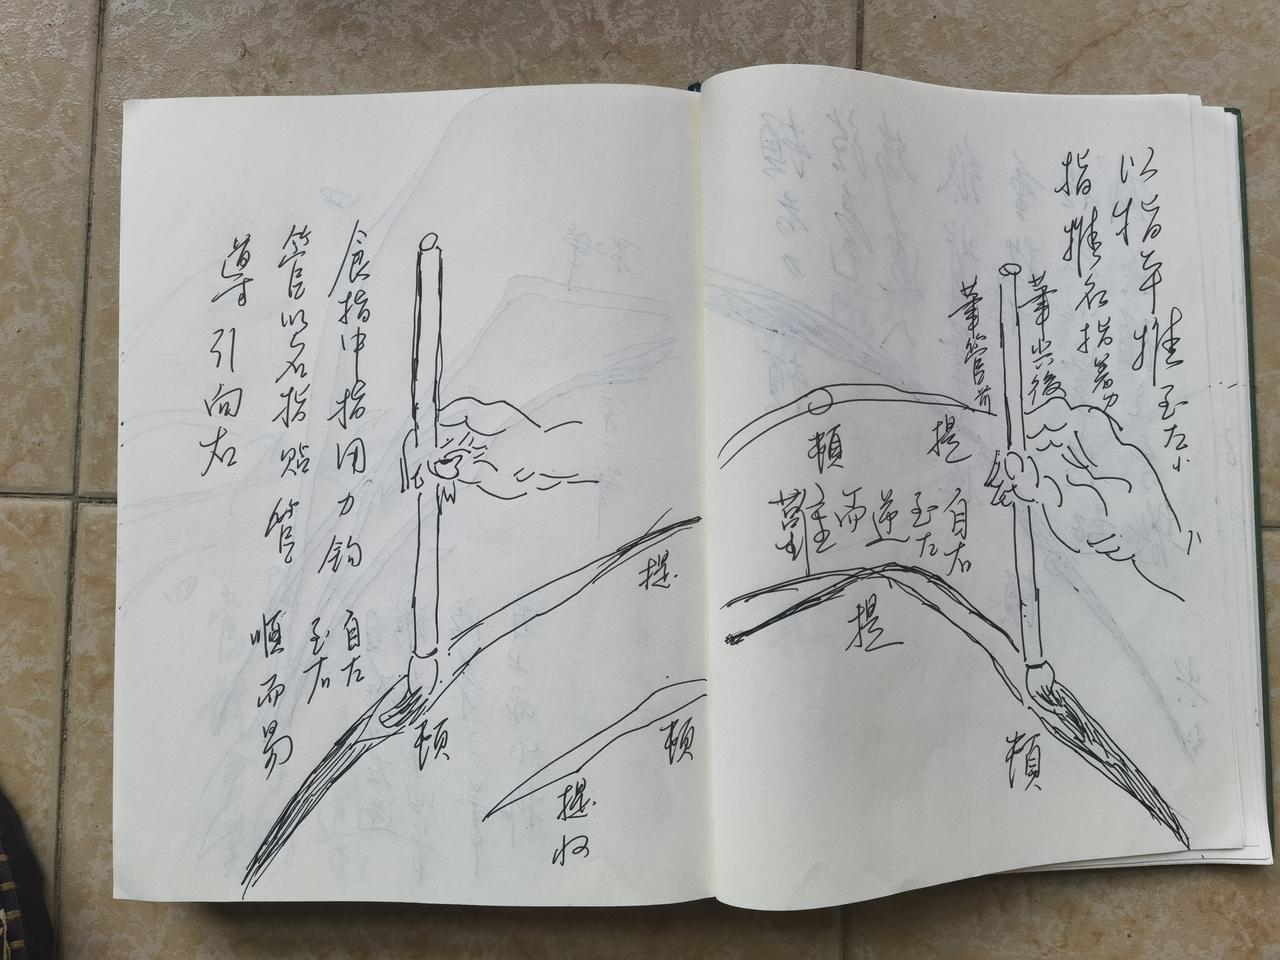 以指平推至左小
指推名指着力
筆尖後
筆管前
提
頓
自右
至左
逆
而
難
提
頓
食指中指用力鈎
管以名指貼管
導引向右
自左
至右
順而易
提
頓
頓
提
收